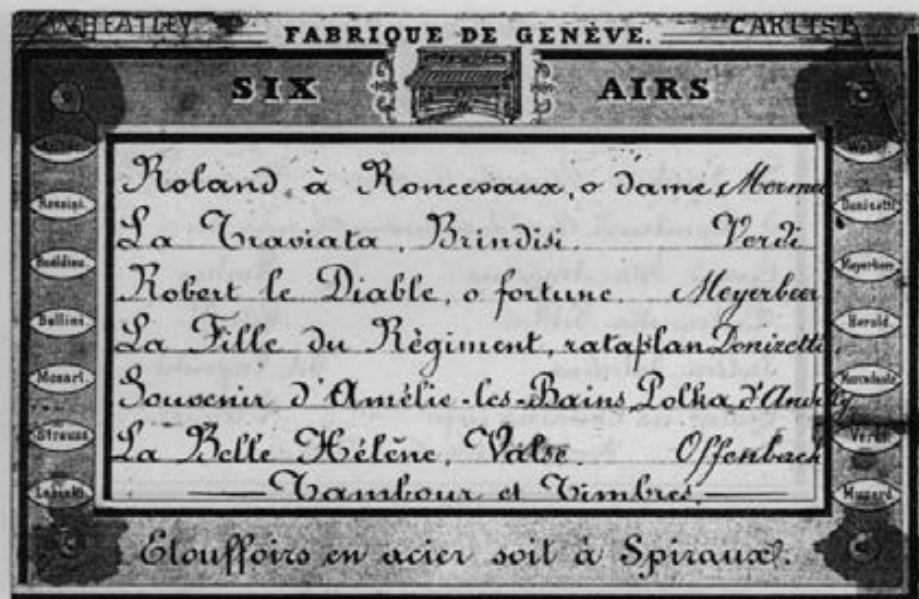 WHEATLEY CARLISLE
FABRIQUE DE GENÈVE.
SIX AIRS
Auber
Rossini
Boëldieu
Bellini
Mozart
Strauss
Labitzki
Roland à Roncevaux, o dame Mermet
La Traviata, Brindisi. Verdi
Robert le Diable, o fortune. Meyerbeer
La Fille du Règiment, rataplan Donizetti
Souvenir d'Amélie-les-Bains Polka d'Andilly
La Belle Hélène, Valse. Offenbach
Tambour et Timbres.
Weber
Donizetti
Meyerbeer
Herold
Mercadante
Verdi
Musard
Etouffoirs en acier soit à Spiraux.